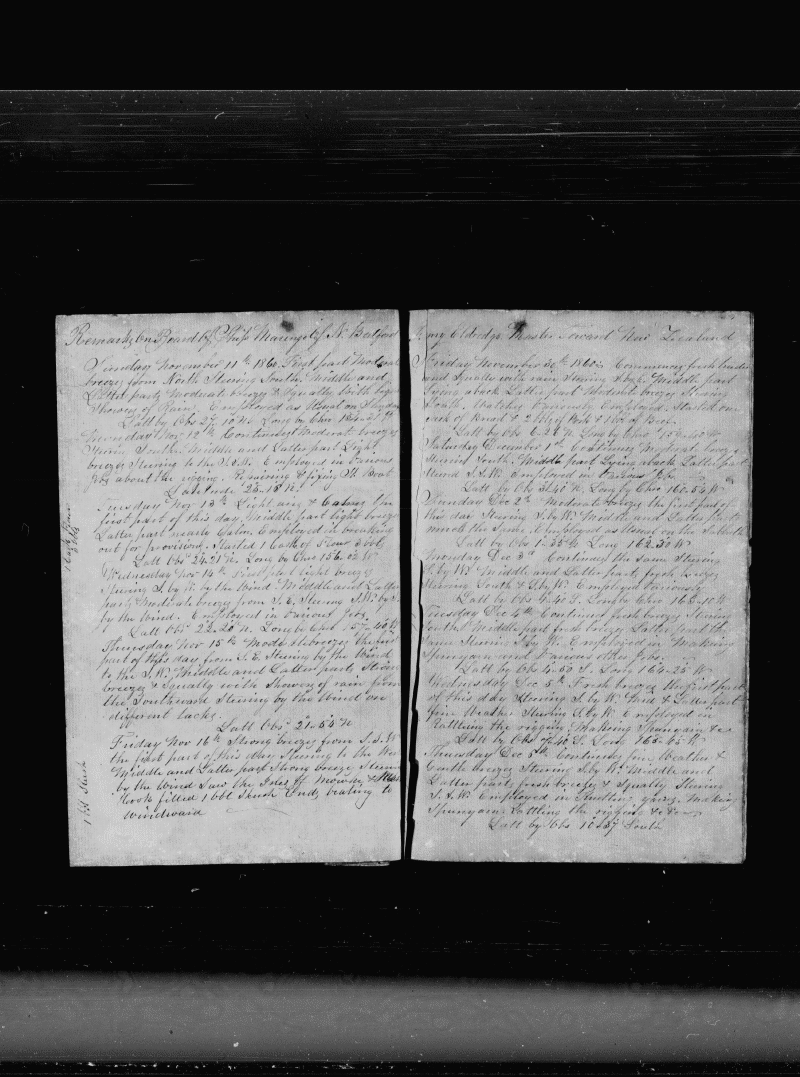 Remarks On Board Of Ship Marengo of N. Bedford
Sunday November 11th 1860 First part Moderate
breezes from North Steering South. Middle and
Latter parts Moderate breezes & Squally with light
Showers of Rain. Employed as Usual on
Latt by Obs 27-10 N. Long by Chro
Monday Nov 12th Continued Moderate breezes
Steering South. Middle and Latter part Light
breezes Steering to the S.W. Employed in Various
Jobs about the rigging. Repairing & fixing St. Boat
Latitude 25-18 N.
Tuesday Nov 13th Light airs & Calms the
first part of this day. Middle part light breezes
Latter part nearly Calm. Employed in breaking
out for provisions. Started 1 Cask of Flour 3 bbls
Latt Obs 24.21 N. Long by Chro 156.02 W
Wednesday Nov 14th First part light breezes
Steering S. by W. by the Wind. Middle and Latter
parts Moderate breezes from S.E. Steering S.W. by S.
by the Wind. Employed in Various Jobs
Latt Obs 22-20 N. Long by Chro 157-40 W
Thursday Nov 15th Moderate breezes the first
part of this day from S.E. Steering by the Wind
to the S.W. Middle and Latter parts Strong
breezes & Squally with Showers of rain from
the Southward Steering by the Wind on
different tacks.
Latt Obs 21-54 N
Friday Nov 16th Strong breezes from S.S.W
the first part of this day Steering to the
Middle and Latter part Strong breezes Steering
by the Wind Saw the Isles of Mowee &
Cook filled 1 bbl Slush Ends beating to
Windward
1 Cask Flour
3 bbls
1 bbl Slush
Eldredge Master Toward New Zealand
Friday November 30th 1860 Commences fresh breezes
and Squally with rain Steering S by W. Middle part
Lying aback Latter part Moderate breezes Steering
South. Watches Variously Employed. Started one
Cask of Bread & 2 bbls of Pork & 1 bbl of Beef.
Latt by Obs Long by Chro 159-40 W
Saturday December 1st Continues Moderate breezes
Steering South. Middle part Lying aback Latter part
Steering S.S.W. Employed in Various Jobs
Latt by Obs 3.40 N. Long by Chro 160.54 W
Sunday Dec 2d Moderate breezes the first part of
this day Steering S. by W. Middle and Latter parts
much the Same. Employed as Usual on the Sabbath
Latt by Obs 1-38 N Long 162.30 W
Monday Dec 3d Continues the same Steering
S. by W. Middle and Latter parts fresh breezes
Steering South & S. by W. Employed Variously
Latt by Obs 40 S. Long by Chro 163-10 W
Tuesday Dec 4th Continues fresh breezes Steering
South. Middle part fresh breezes Latter part the
Same Steering S by W. Employed in Making
Spunyarn and Various other Jobs
Latt by Obs 4-50 S. Long 164-25 W
Wednesday Dec 5th Fresh breezes the first part
of this day Steering S. by W. Midd & Latter part
fine Weather Steering S. by W. Employed in
Rattling the rigging. Making Spunyarn &c
Latt by Obs 7-40 S. Long 165-45 W
Thursday Dec 6th Continues fine Weather &
Gentle breezes Steering S. by W. Middle and
Latter parts fresh breezes & Squally Steering
S.S.W. Employed in Rattling rigging. Making
Spunyarn Rattling the rigging &c &c
Latt by Obs 10-27 South